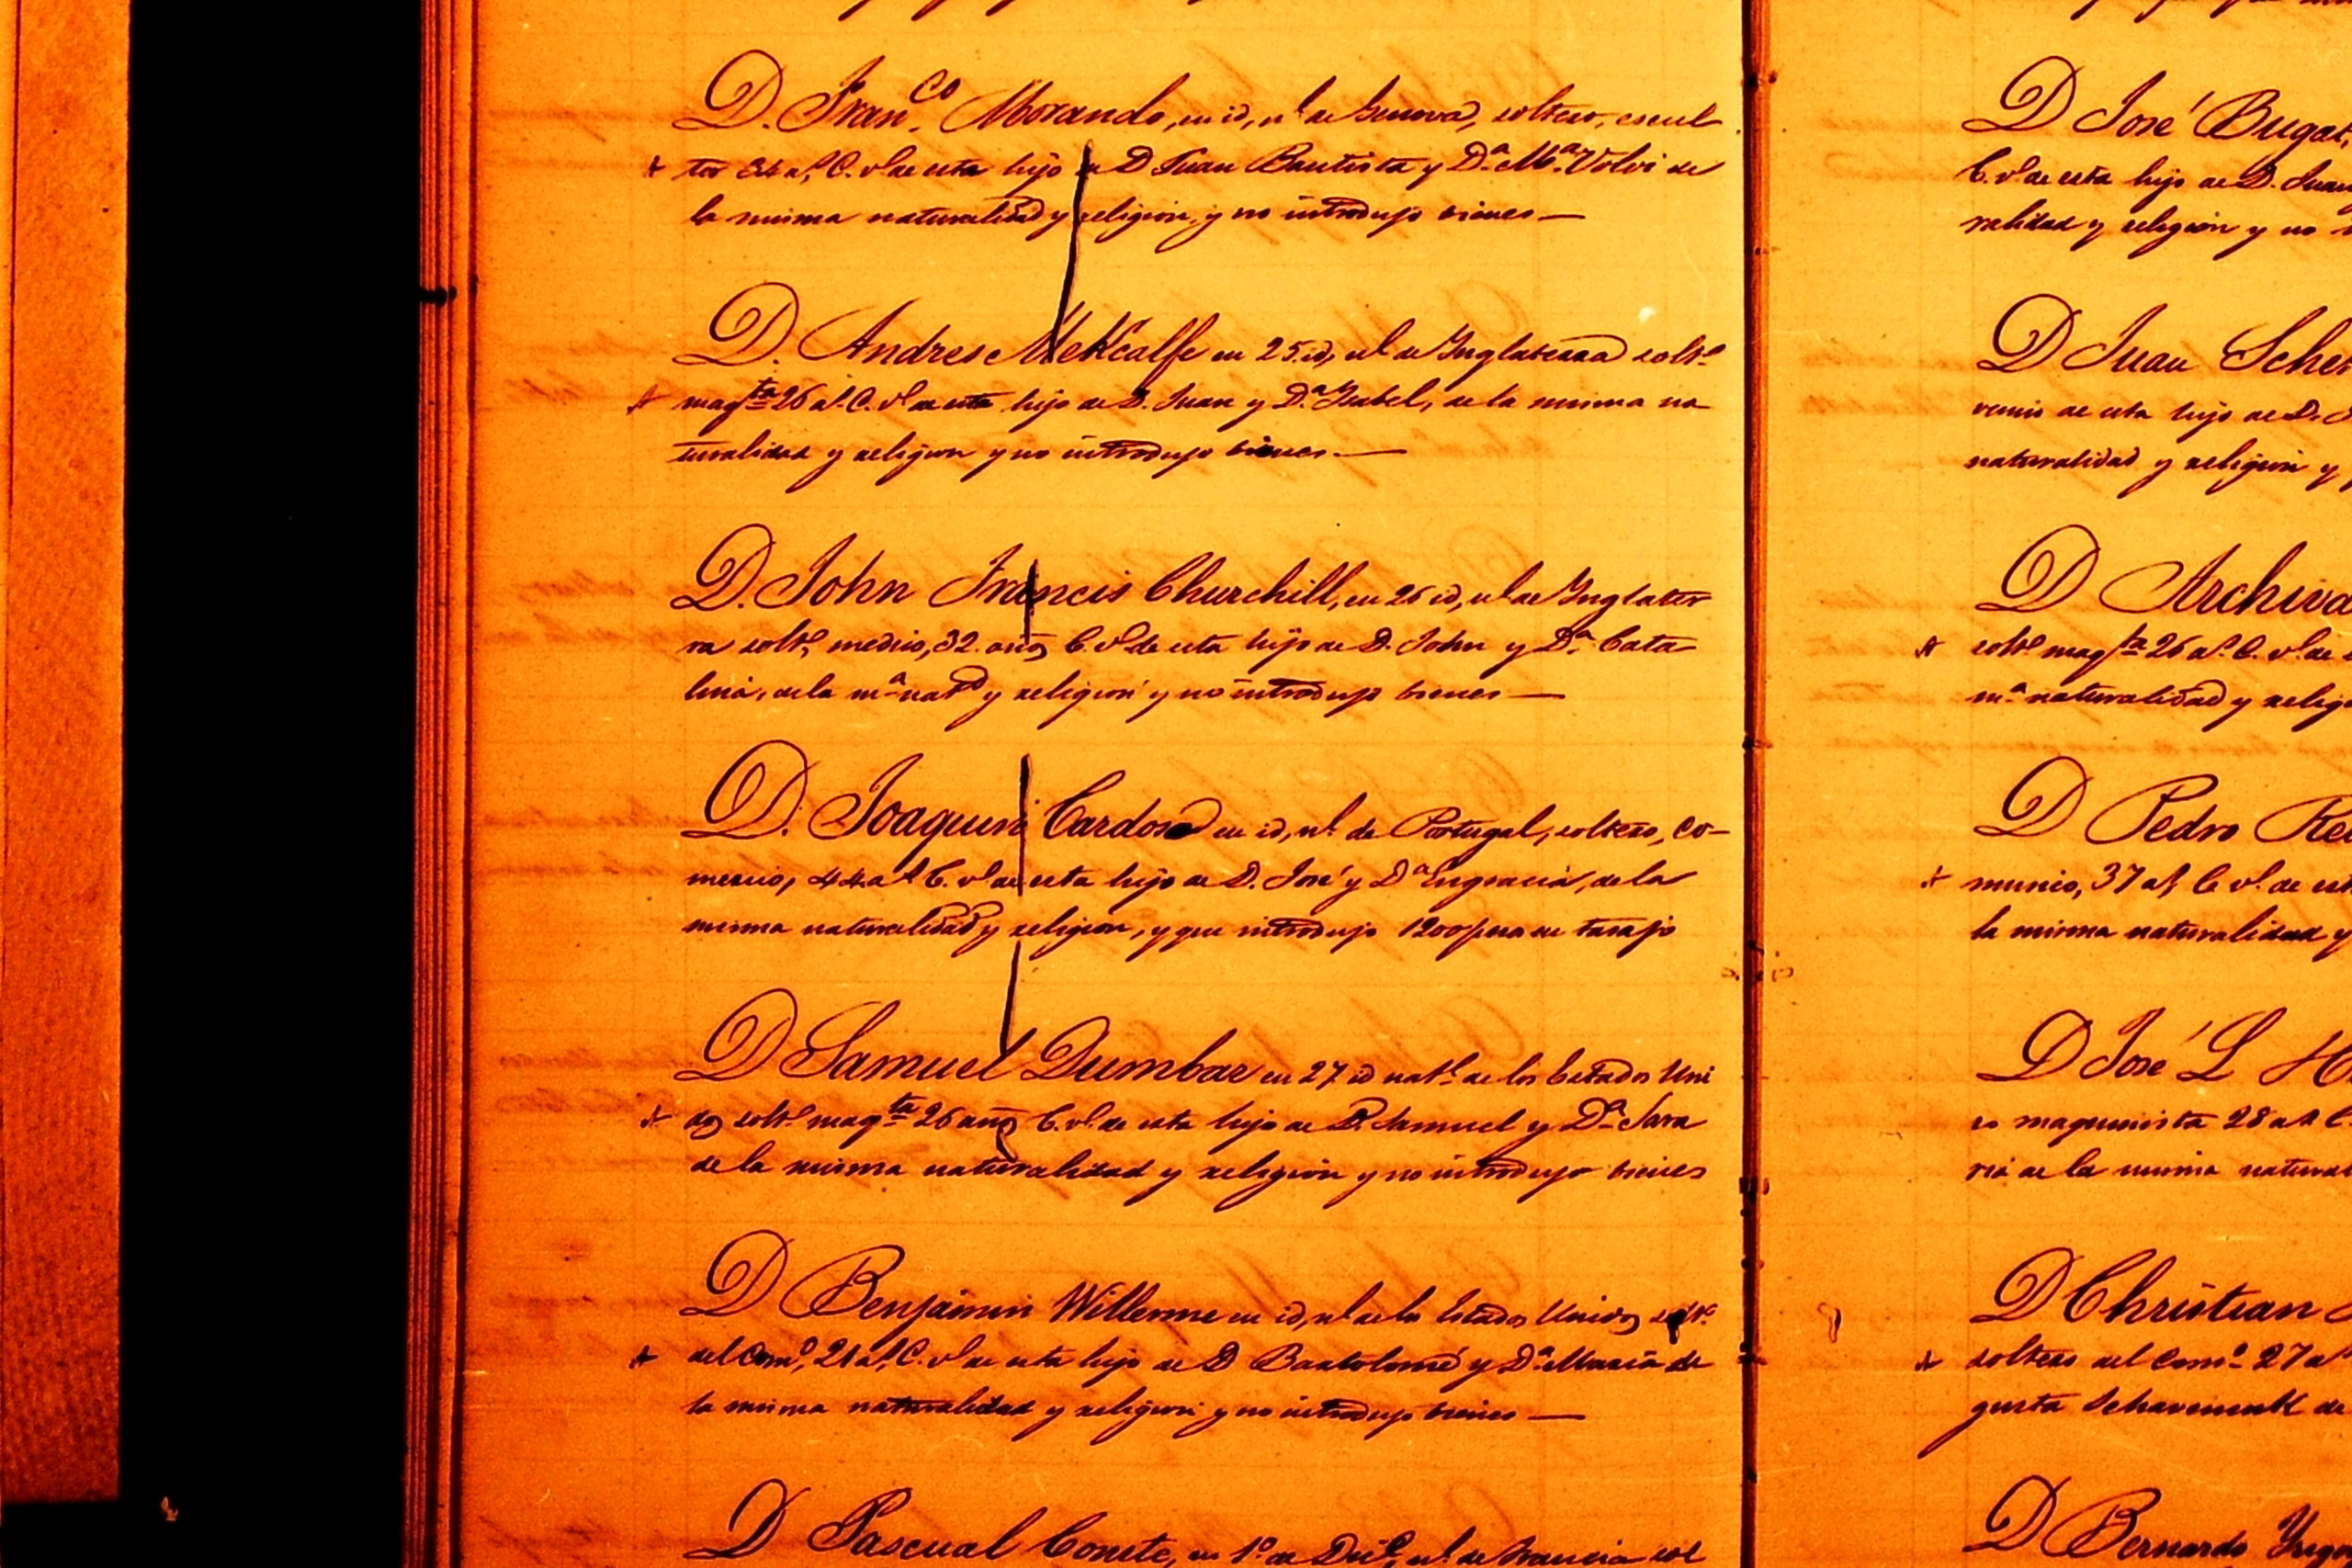 D. Fran.co Morando, en id, nl de Genova, soltero, escul
tor 34 as, C. vo de esta hijo de D Juan Bautista y D.a M.a Volvi de
la misma naturalidad y religion, y no introdujo bienes —
D. Andres MetKcalfe en 25 id, nl de Inglaterra solto
magta 26 as. C. vo de esta hijo de D. Juan y D.a Ysabel, de la misma na
turalidad y religion y no introdujo bienes. —
D. John Francis Churchill, en 26 id, nl de Inglater
ra solto, medico, 32. años C. vo de esta hijo de D. John y D.a Cata
lina, de la ma natd y religion y no introdujo bienes —
D. Joaquin Cardoso en id, nl. de Portugal, soltero, co-
mercio, 44 as C. vo de esta hijo de D. José y Da Engracia, de la
misma naturalidad y religion, y que introdujo 1200 pesos en tasajo
D Samuel Dumbar en 27 id natl. de los Estados Uni
dos solto magta 26 años C. vo. de esta hijo de D. Samuel y Da Sara
de la misma naturalidad y religion y no introdujo bienes
D Benjamin Willerme en id, nl de los Estados Unidos solto
del Como, 21 as, C. vo de esta hijo de D Bartolomé y Da Maria de
la misma naturalidad y religion y no introdujo bienes —
D Pascual Comte, en 1o de Dice, nl. de Francia sol
D José Bugal,
C. vo de esta hijo de D. Juan
ralidad y religion y no
D Juan
vecino de esta hijo de D.
naturalidad y religion y
D
solto magta 26 as. C. vo. de
ma naturalidad y relig
D Pedro
mercio, 37 as, C vo. de est
la misma naturalidad y
D José L
ro maquinista 28 as C.
ria de la misma natural
D Christian
soltero del Como 27 as
gusta de
D Bernardo